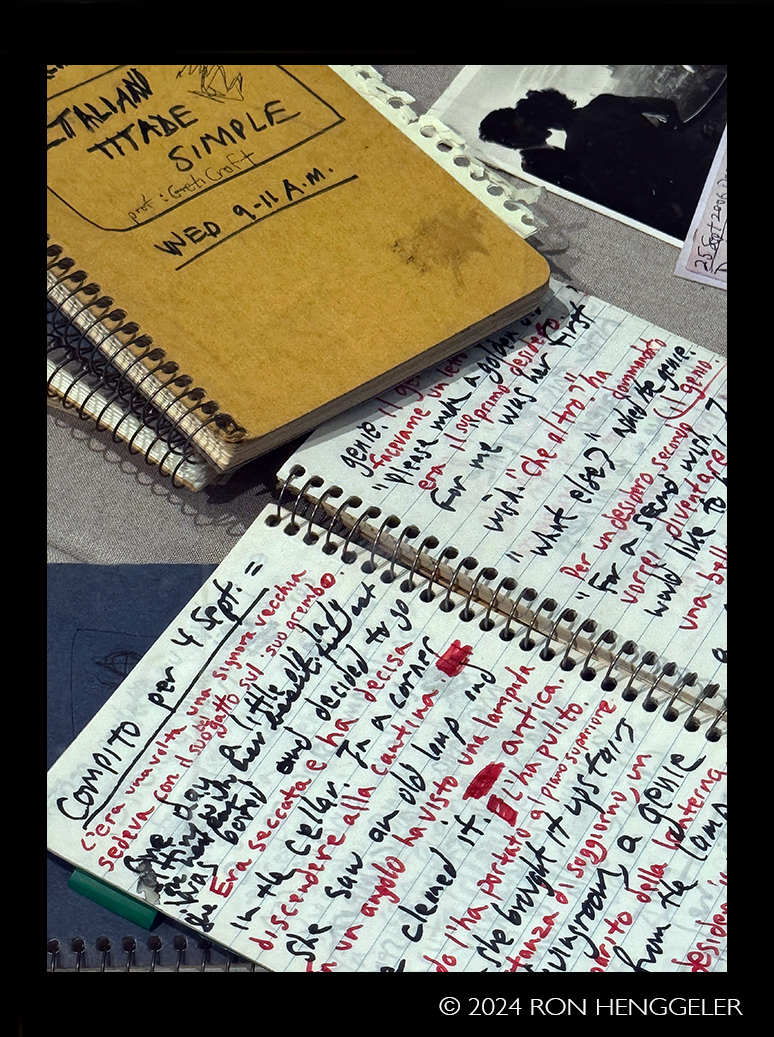 ITALIAN
MADE
SIMPLE
prof: Greti Croft
WED 9-11 A.M.
25 Sept 2006
genie. il
facevame un
"please make a golden
era il supprimo desidero.
For me was her first
wish. "Che altro" ha
"What else?" asked the genie.
commandato
Per un desidero secondo (il genio
"For a second wish I
vorrei diventare
would like to
una bell
COMPITO per 4 Sept. =
c'era una volta una signora vecchia
sedeva con il suo gatto sul suo grembo.
One day a little old lady
sitting with her
was bored and decided to go
Era seccata e ha decisa
in the cellar. In a corner
discendere alla cantina
She saw an old lamp and
un angolo ha visto una lampada
antica.
cleaned it. L'ha pulito.
do l'ha portato al piano superiore
she brought it upstairs
tanza di soggiorno, un
livingroom, a genie
parito della lanterna
from the lamp
desideri
© 2024 RON HENGGELER